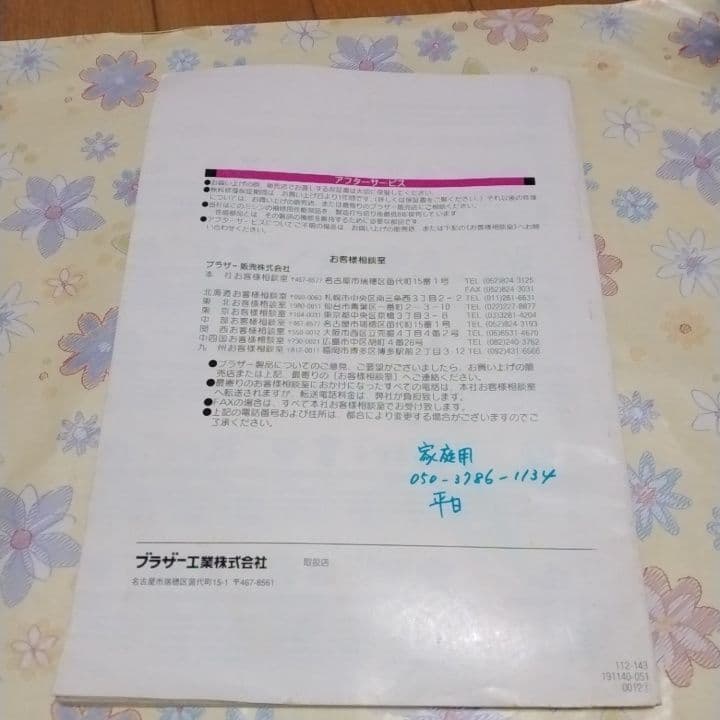 アフターサービス
●お買い上げの際、販売店でお渡しする保証書は大切に保管してください。
●無料修理保証期間は、お買い上げ日より1年間です。(詳しくは保証書をご覧ください。) それ以後の修理
については、お買い上げの販売店、または最寄りのブラザー販売店にご相談ください。
●当社はこのミシンの補修用性能部品を、製造打ち切り後最低8年保有しています
性能部品とは、その製品の機能を維持するために必要な部品です
●アフターサービスについてご不明の場合は、お買い上げの販売店、または下記の《お客様相談室》へお問
い合わせください。
お客様相談室
ブラザー販売株式会社
本 社お客様相談室 〒467-8577 名古屋市瑞穂区苗代町15番1号 TEL (052)824-3125
FAX (052)824-3031
北海道お客様相談室 〒060-0063 札幌市中央区南三条西3丁目2-2 TEL (011)281-6631
東 北お客様相談室 〒980-0811 仙台市青葉区一番町2-3-10 TEL (022)227-8877
東 京お客様相談室 〒104-0031 東京都中央区京橋3丁目3-8 TEL (03)3281-4204
中 部お客様相談室 〒467-8577 名古屋市瑞穂区苗代町15番1号 TEL (052)824-3193
関 西お客様相談室 〒550-0012 大阪市西区立売堀4丁目4-2 TEL (06)6531-4670
中四国お客様相談室 〒730-0021 広島市中区胡町4番26号 TEL (082)240-3762
九 州お客様相談室 〒812-0011 福岡市博多区博多駅前2丁目3-12 TEL (092)431-6566
●ブラザー製品についてのご意見、ご要望がございましたら、お買い上げの販
売店または上記、最寄りの《お客様相談室》へご連絡ください。
●最寄りのお客様相談室におかけになったすべての電話は、本社お客様相談室
へ転送されますが、転送電話料金は、弊社が負担致します。
●FAXの場合は、すべて本社お客様相談室でお受け致します。
●上記の電話番号および住所は、都合により変更する場合がございますのでご
了承ください。
家庭用
050-3786-1134
平日
ブラザー工業株式会社 取扱店
名古屋市瑞穂区苗代町15-1 〒467-8561
112-143
191140-051
0012①